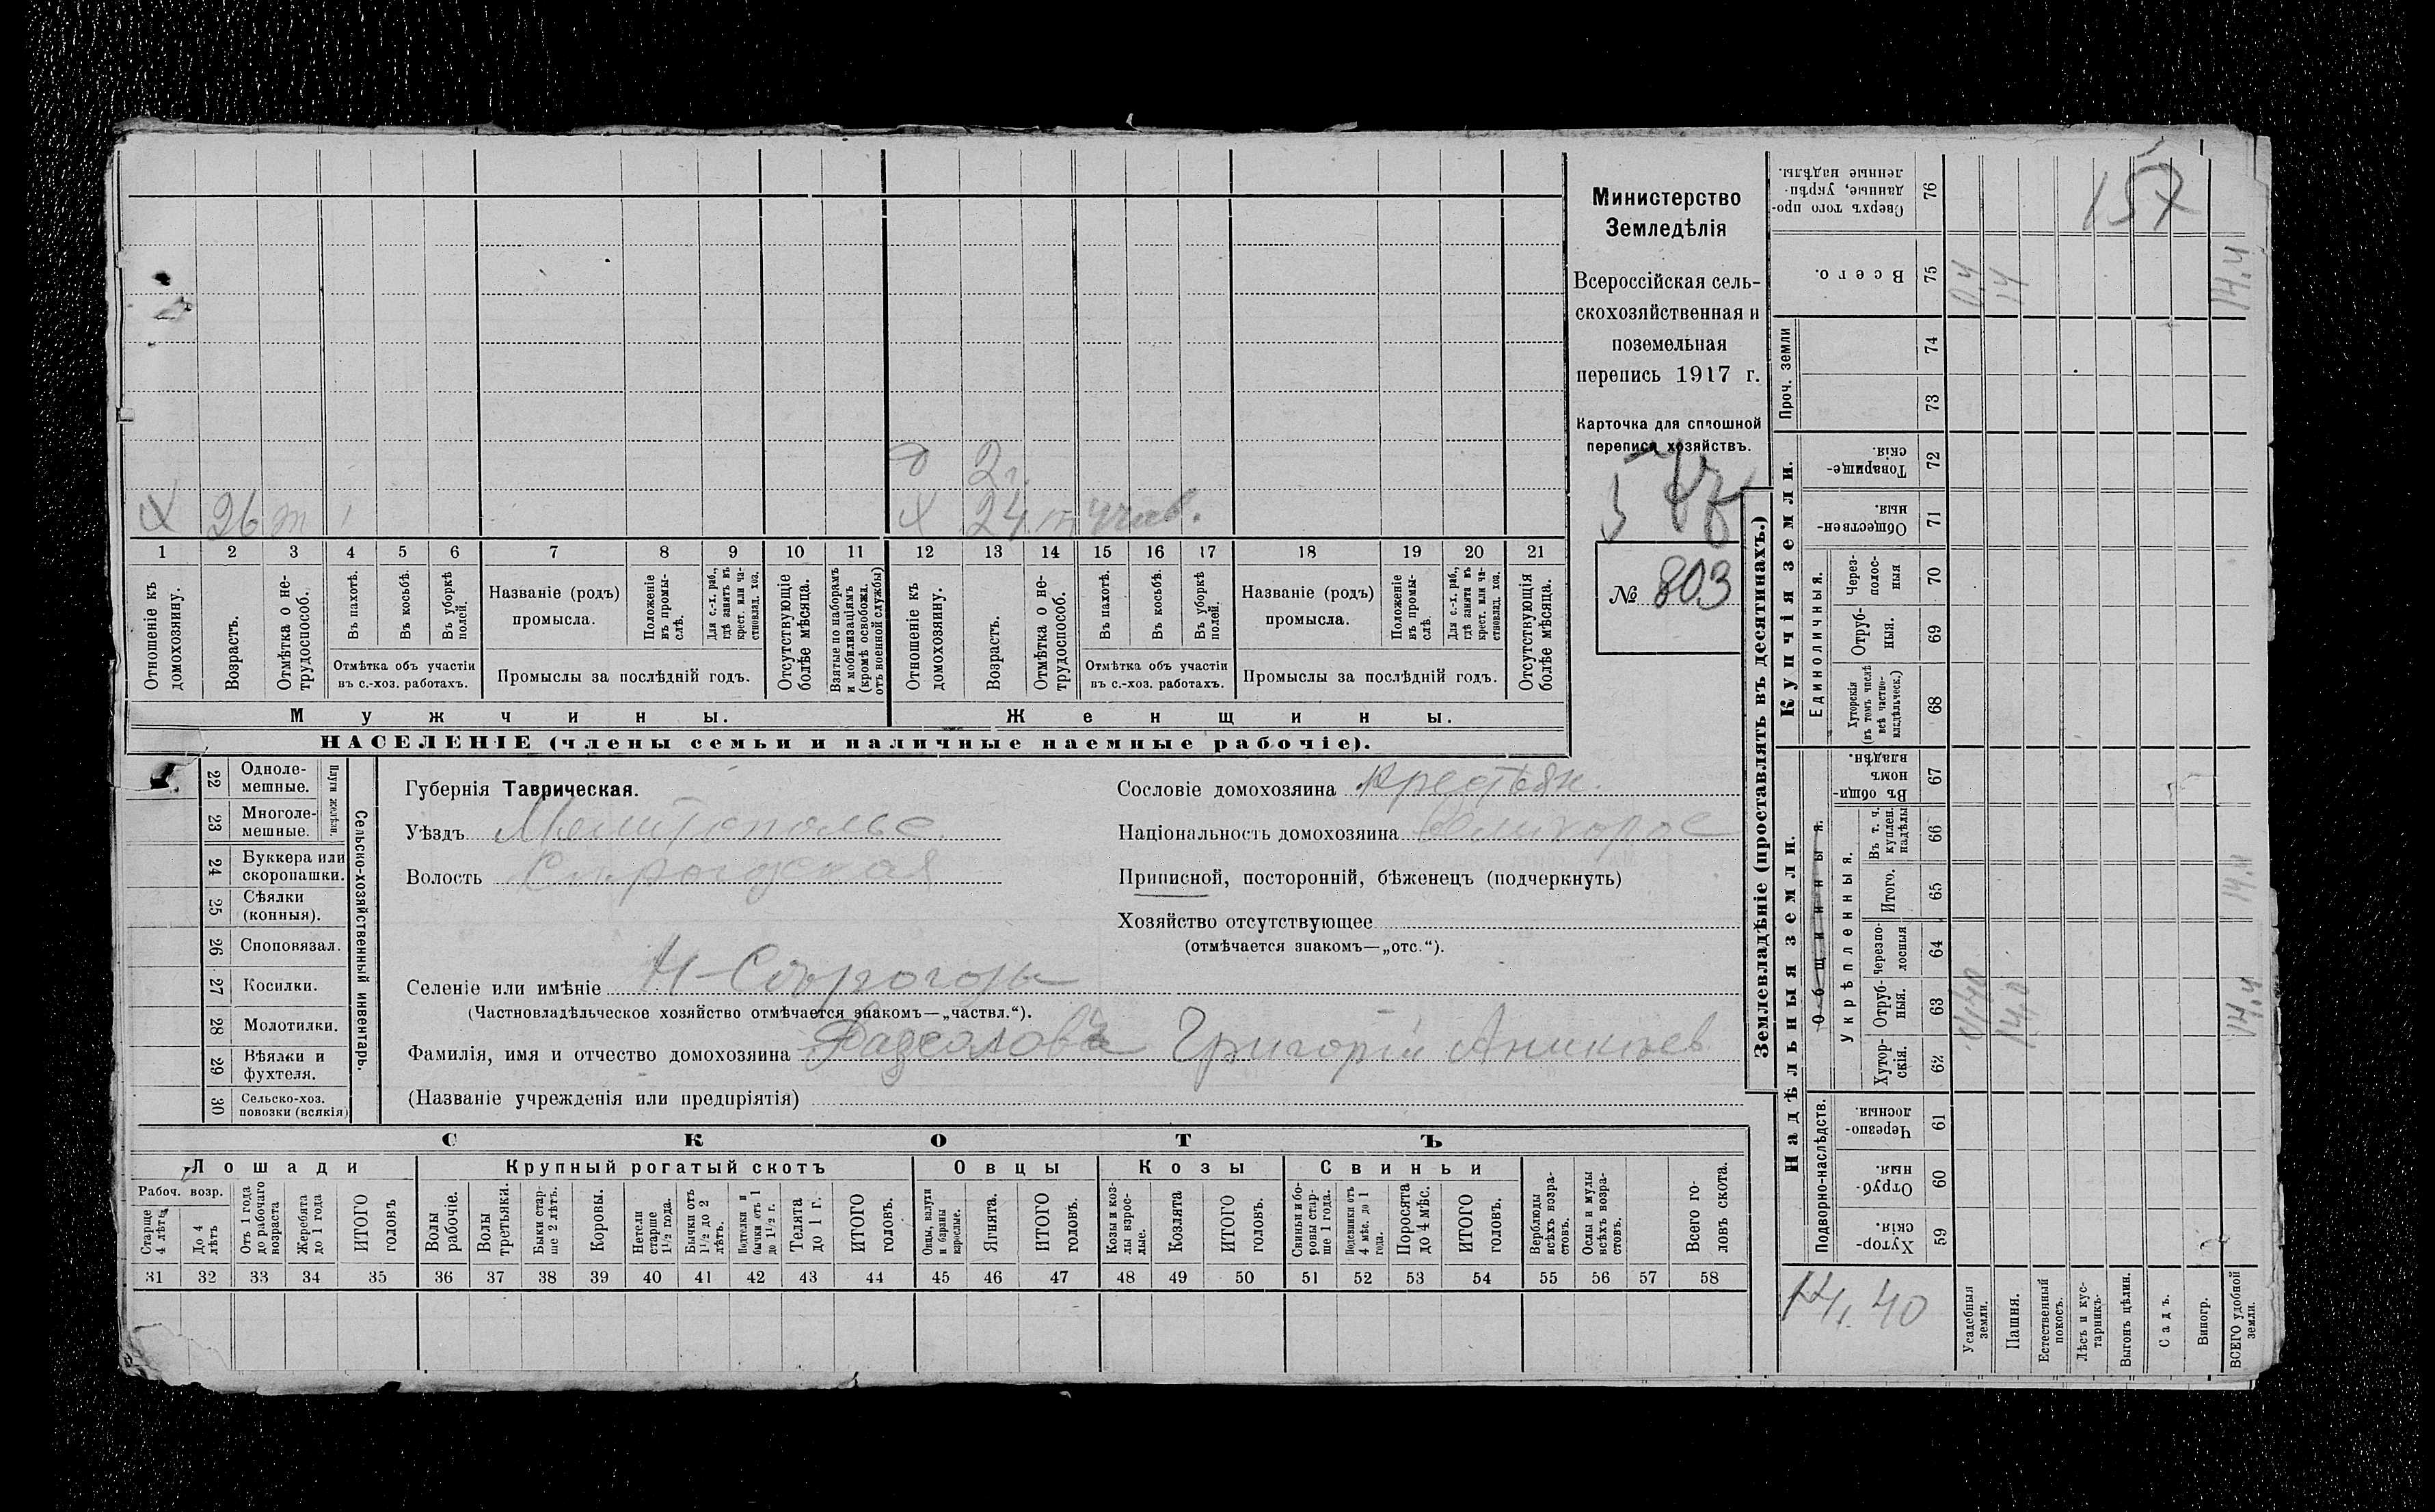 157
х 26 т
д 2 г.
х 24 т
1 2 3 4 5 6 7 8 9 10 11 12 13 14 15 16 17 18 19 20 21
Отношеніе къ домохозяину.
Возрастъ.
Отмѣтка о не-трудоспособ.
Въ пахотѣ.
Въ косьбѣ.
Въ уборкѣ полей.
Отмѣтка объ участіи
въ с.-хоз. работахъ.
Названіе (родъ)
промысла.
Положеніе въ промы-слѣ.
Для с.-х. раб., гдѣ занятъ въ крест. или ча-стновлад. хоз.
Промыслы за послѣдній годъ.
Отсутствующіе болѣе мѣсяца.
Взятые по наборамъ и мобилизаціямъ (кромѣ освобожд. отъ военной службы)
Отношеніе къ домохозяину.
Возрастъ.
Отмѣтка о не-трудоспособ.
Въ пахотѣ.
Въ косьбѣ.
Въ уборкѣ полей.
Отмѣтка объ участіи
въ с.-хоз. работахъ.
Названіе (родъ)
промысла.
Положеніе въ промы-слѣ.
Для с.-х. раб., гдѣ занята въ крест. или ча-стновлад. хоз.
Промыслы за послѣдній годъ.
Отсутствующія болѣе мѣсяца.
Мужчины.
Женщины.
НАСЕЛЕНІЕ (члены семьи и наличные наемные рабочіе).
Министерство
Земледѣлія
Всероссійская сель-
скохозяйственная и
поземельная
перепись 1917 г.
Карточка для сплошной
переписи хозяйствъ.
№ 803
22 Одноле-мешные.
23 Многоле-мешные.
Плуги желѣзн.
24 Буккера или скоропашки.
25 Сѣялки (конныя).
26 Сноповязал.
27 Косилки.
28 Молотилки.
29 Вѣялки и фухтеля.
30 Сельско-хоз. повозки (всякія)
Сельско-хозяйственный инвентарь.
Губернія Таврическая.
Уѣздъ Мелитопольс
Волость
Селеніе или имѣніе Н-Сѣрогозы
(Частновладѣльческое хозяйство отмѣчается знакомъ—„частвл.“).
Фамилія, имя и отчество домохозяина Григорій Аникіев
(Названіе учрежденія или предпріятія)
Сословіе домохозяина крестьян.
Національность домохозяина великорос
Приписной, посторонній, бѣженецъ (подчеркнуть)
Хозяйство отсутствующее
(отмѣчается знакомъ—„отс.“).
СКОТЪ
Лошади
Крупный рогатый скотъ
Овцы
Козы
Свиньи
Рабоч. возр.
Старше 4 лѣтъ
До 4 лѣтъ
Отъ 1 года до рабочаго возраста
Жеребята до 1 года
ИТОГО головъ
Волы рабочіе.
Волы третьяки.
Быки стар-ше 2 лѣтъ.
Коровы.
Нетели старше 1½ года.
Бычки отъ 1½ до 2 лѣтъ.
Подтелки и бычки отъ 1 до 1½ г.
Телята до 1 г.
ИТОГО головъ.
Овцы, валухи и бараны взрослые.
Ягнята.
ИТОГО головъ.
Козы и коз-лы взрос-лые.
Козлята
ИТОГО головъ.
Свиньи и бо-ровы стар-ше 1 года.
Подсвинки отъ 4 мѣс. до 1 года.
Поросята до 4 мѣс.
ИТОГО головъ.
Верблюды всѣхъ возра-стовъ.
Ослы и мулы всѣхъ возра-стовъ.
Всего го-ловъ скота.
31 32 33 34 35 36 37 38 39 40 41 42 43 44 45 46 47 48 49 50 51 52 53 54 55 56 57 58
Землевладѣніе (проставлять въ десятинахъ.)
Сверхъ того про-данные, укрѣп-ленные надѣлы. 76
Всего. 75 0,4 14 14,4
Проч. земли
74
73
Купчія земли.
Товарище-скія. 72
Обществен-ныя. 71
Единоличныя.
Через-полос-ныя 70
Отруб-ныя. 69
Хуторскія (въ томъ числѣ всѣ частно-владѣльческ.) 68
Надѣльныя земли.
Общинныя.
Въ общи-номъ владѣн. 67
Укрѣпленныя.
Въ т. ч. куплен. надѣлы 66
Итого. 65 14,4
Черезпо-лосныя 64
Отруб-ныя. 63 0,40 14,0 14,4
Хутор-скія. 62
Подворно-наслѣдств.
Черезпо-лосныя. 61
Отруб-ныя. 60
Хутор-скія. 59
14,40
Усадебныя земли.
Пашня.
Естественный покосъ.
Лѣсъ и кус-тарникъ.
Выгонъ цѣлин.
Садъ.
Виногр.
ВСЕГО удобной земли.